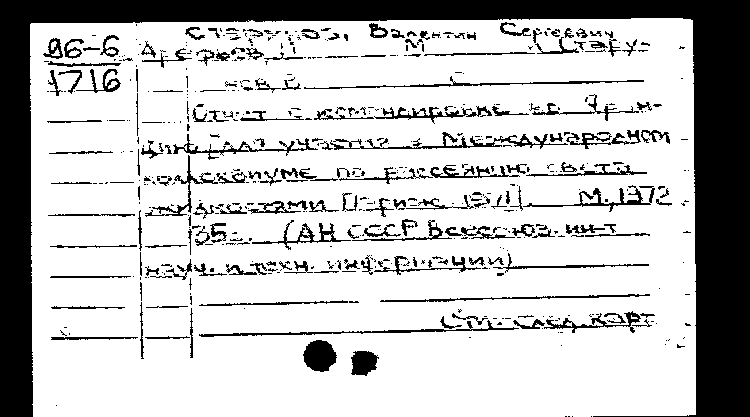 Старунов, Валентин Сергеевич
96-6 Арефьев, И М И Стару-
1716 нов, В. С.
Отчет о командировке во Фран-
цию [для участия в Международном
коллоквиуме по рассеянию света
жидкостями Париж 1971]. М., 1972
35с. (АН СССР Всесоюз. ин-т
науч. и техн. информации)
См. след. карт